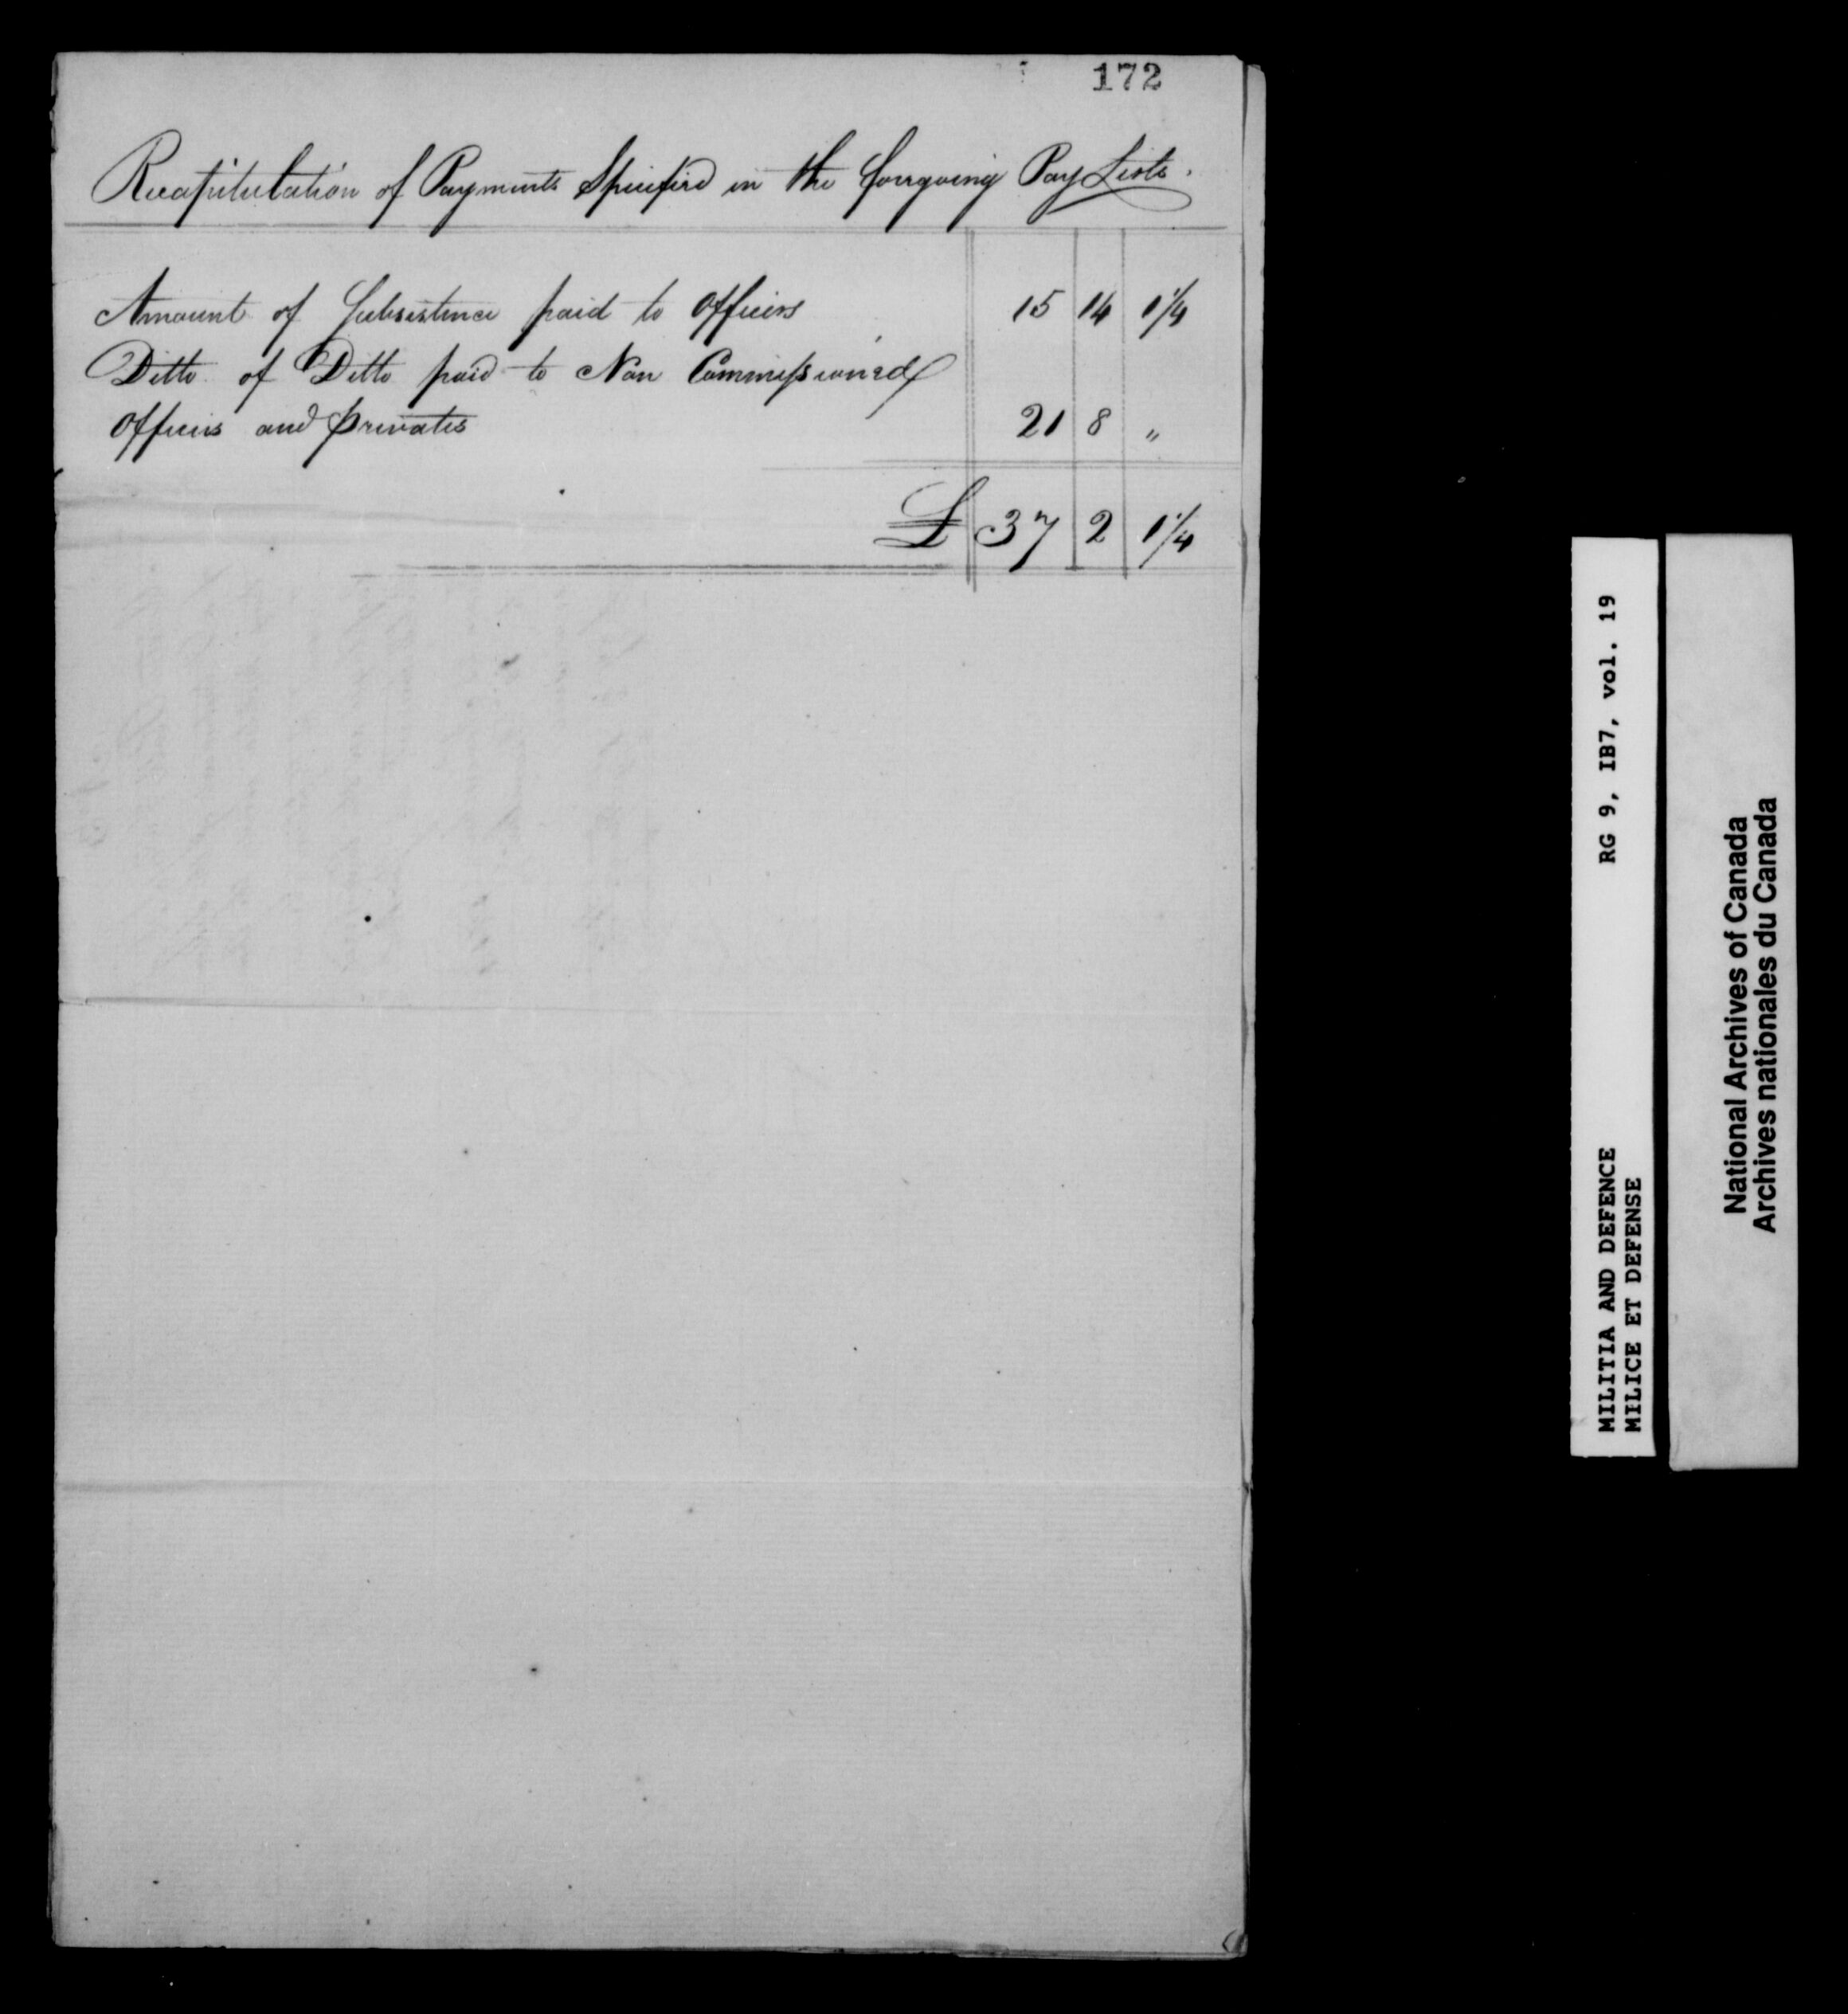 172
Recapitulation of Payments Specified in the foregoing Pay Lists.
Amount of Subsistence paid to Officers 15 14 1 1/4
Ditto of Ditto paid to Non Commissioned
Officers and Privates 21 8 "
£ 37 2 1 1/4
MILITIA AND DEFENCE RG 9, IB7, vol. 19
MILICE ET DEFENSE
National Archives of Canada
Archives nationales du Canada